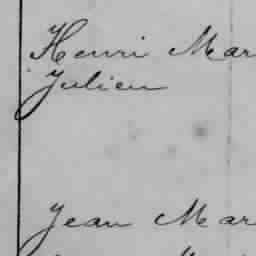 Henri Mar
Julien
Jean Mar